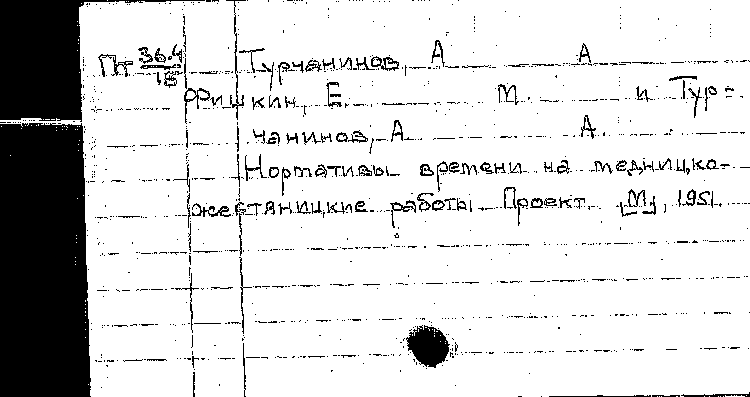 Пт 36.4/18 Турчанинов, А А
Фришкин, Е. М. и Тур=
чанинов, А А.
Нормативы времени на медницко-
жестяницкие работы. Проект. [М], 1951.